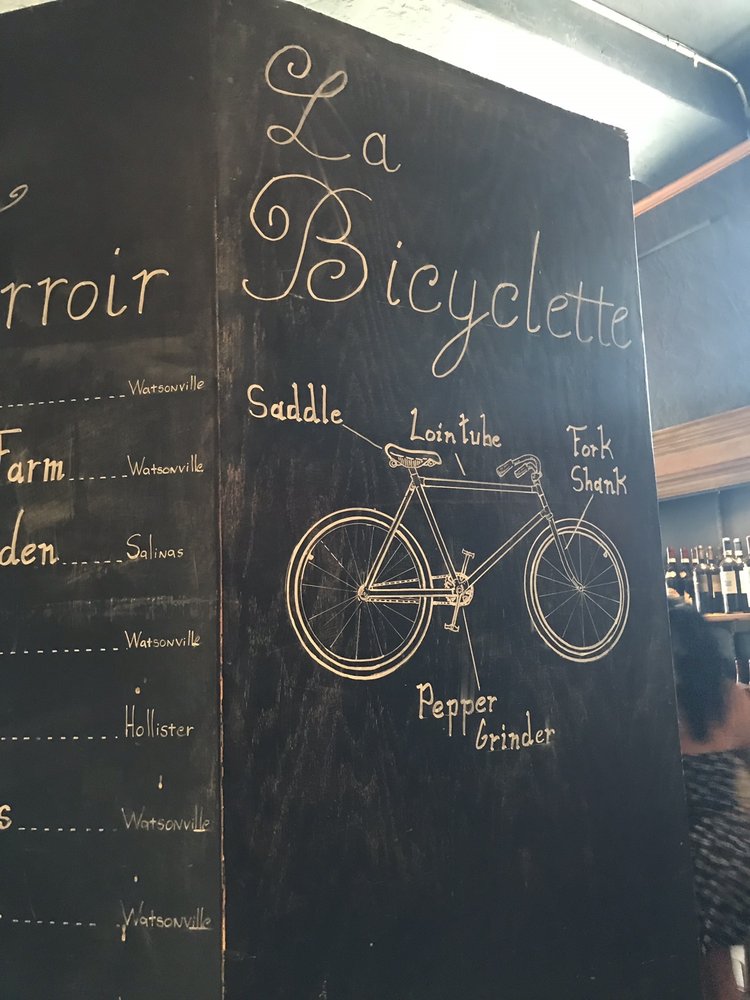 rroir
Watsonville
Farm Watsonville
den Salinas
Watsonville
Hollister
s Watsonville
Watsonville
La
Bicyclette
Saddle
Loin tube
Fork
Shank
Pepper
Grinder